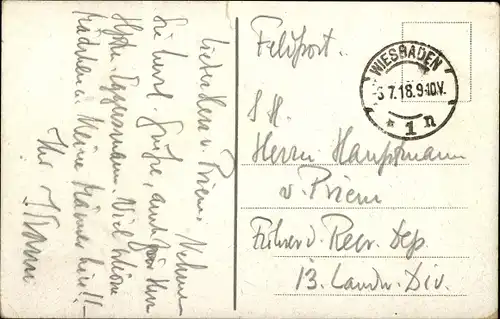 Lieber Herr v. Priem. Nehmen
Sie herzl. Grüße, auch für Herrn
Hptm. Eggersmann. Viel schöne
Mädchen u. keine Männer hier!!–
Ihr
Feldpost.
WIESBADEN
-3.7.18.9-10V.
* 1 n
S. H.
Herrn Hauptmann
v. Priem
Führer d. Rekr. Dep.
13. Landw. Div.